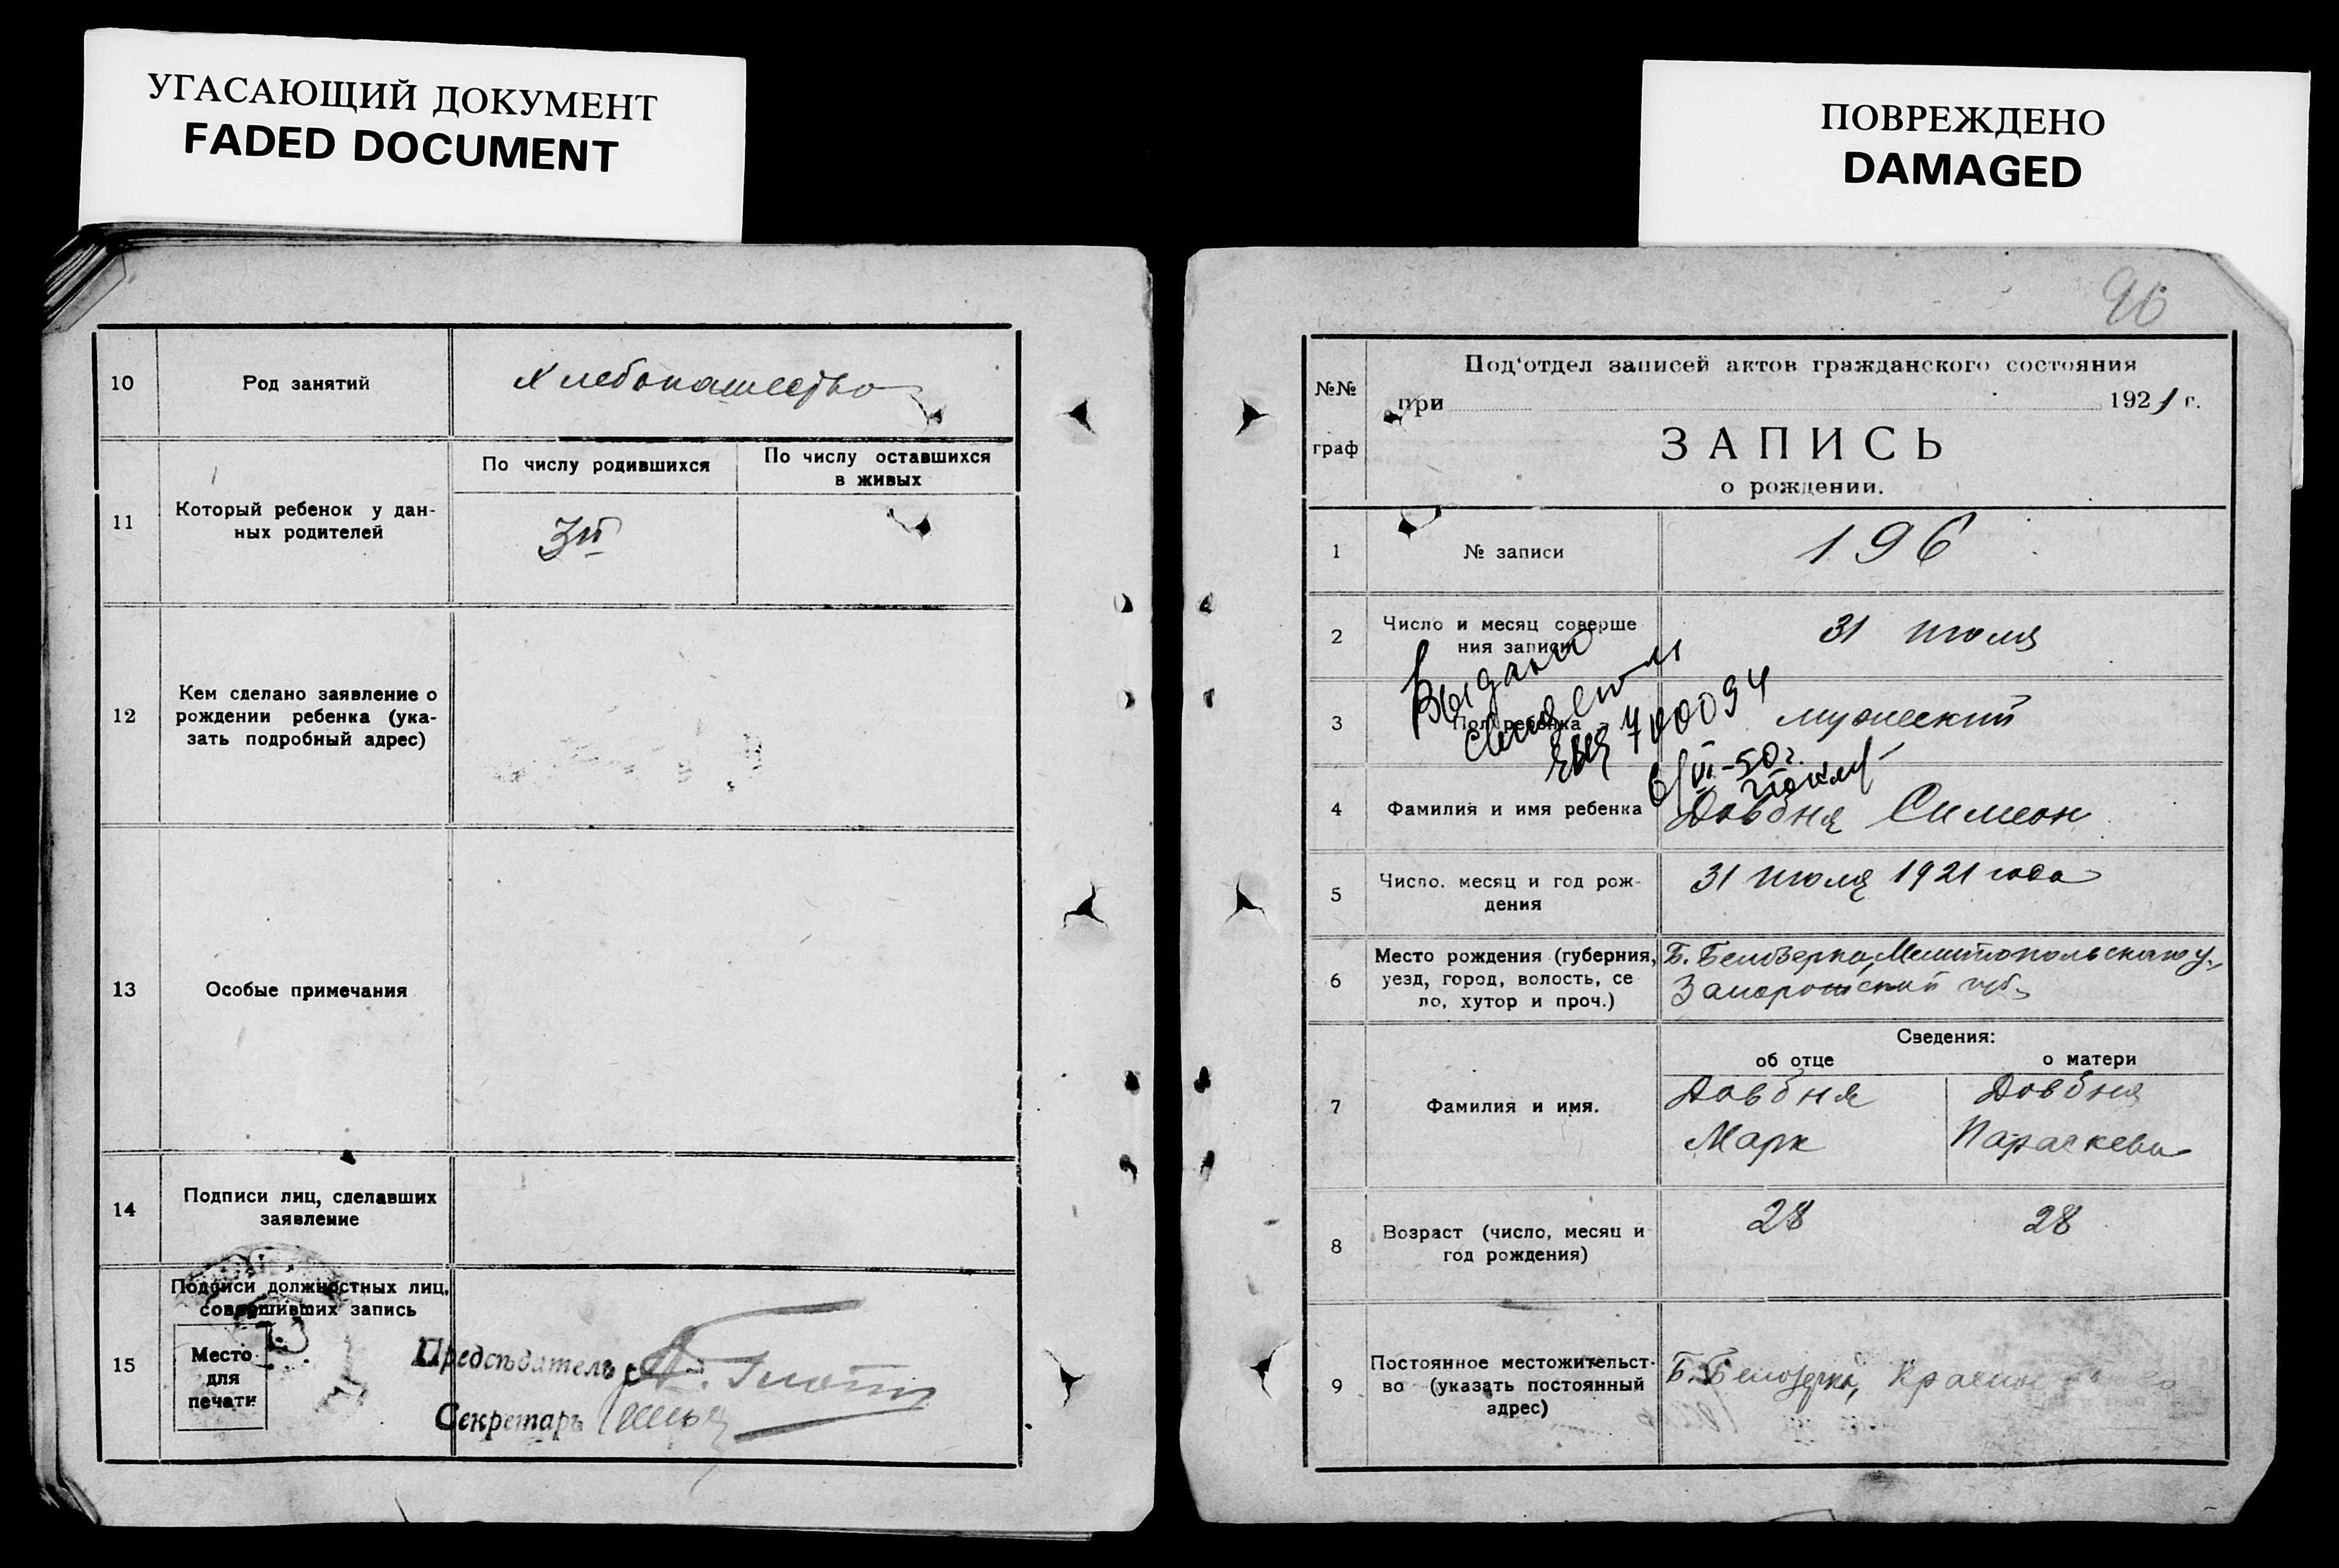 УГАСАЮЩИЙ ДОКУМЕНТ
FADED DOCUMENT
ПОВРЕЖДЕНО
DAMAGED
10
Род занятий
Хлебопашество
11
Который ребенок у дан-
ных родителей
По числу родившихся
По числу оставшихся
в живых
3й
12
Кем сделано заявление о
рождении ребенка (ука-
зать подробный адрес)
13
Особые примечания
14
Подписи лиц, сделавших
заявление
15
Подписи должностных лиц,
совершивших запись
Место
для
печати
Председатель
Секретарь
96
№№
граф
Под'отдел записей актов гражданского состояния
при 1921 г.
ЗАПИСЬ
о рождении.
1
№ записи
196
2
Число и месяц соверше
ния записи
31 июля
3
Пол ребенка
мужеский
Выдано
ЯЫЦ 700094
6/VI-50г.
4
Фамилия и имя ребенка
Довбня Симеон
5
Число, месяц и год рож-
дения
31 июля 1921 года
6
Место рождения (губерния,
уезд, город, волость, се
ло, хутор и проч.)
Б. Белозерка, Мелитопольского у.,
Запорожской губ.
Сведения:
об отце
о матери
7
Фамилия и имя.
Довбня
Марк
Довбня
Параскева
8
Возраст (число, месяц и
год рождения)
28
28
9
Постоянное местожительст-
во (указать постоянный
адрес)
Б. Белозерка,